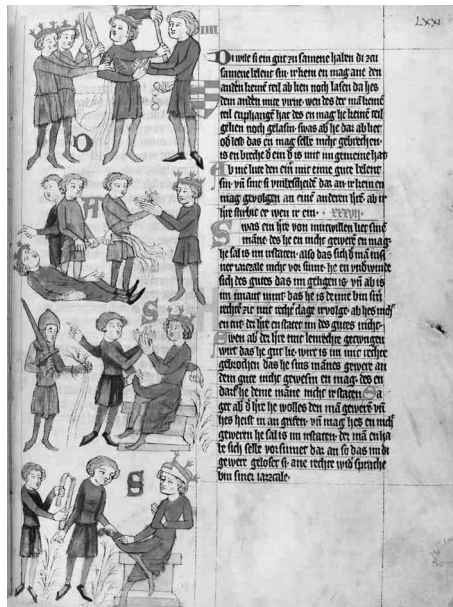 LXXI
Di wile si ein gut zu samene haben di zu
samene belent sin. ir kein en mag ane den
andern kein teil ab lien noch lasen da he s
dem andin mite virne. wen des der man keine
teil enphangen hat des en mag he keine teil
gelien noch gelasin. swas ab he dar ab liet
od let das en mag selbe nicht gebrechen.
is en breche d ein d is mit im gemeine hat
Ab mit lute den ein mit eime gute belent
sin. vn sint si vmbescheidē dar an. ir kein en
mag gevolgen an eine anderen hrē. ab ir
hre stirbit er wen ir ein. XXXVII.
Swas ein hre von mitwillen liet sine
māne des he en nicht geweren en mag.
he sal is im irstaten. also das sich d man in si
ner iarczale nicht vor sume. he en
sich des gutes das im geligen is. vn ab is
im imant nimt das he is denne bin sin
rechte zit mit rechte clage irvolge. ab hes nicht
en tut. der hre en staret im des gutes nicht.
Swen ab der hre mit lenrechte getwngen
wirt das he gut lie. wirt is im mit rechte
gebrochen das he sins mānes gewere an
dem gute nicht gewesin en mag. des en
darf he deme māne nicht irstaten. Sa
ger ab d hre he wolles den mā geweren vn
hes heist in an grifen. vn mag hes en nicht
geweren he sal is im irstaten. der mā en ha
be sich selbe vorsumet dar an so das im di
gewere gelosit si. ane rechte wid sprache
bin siner iarczale.